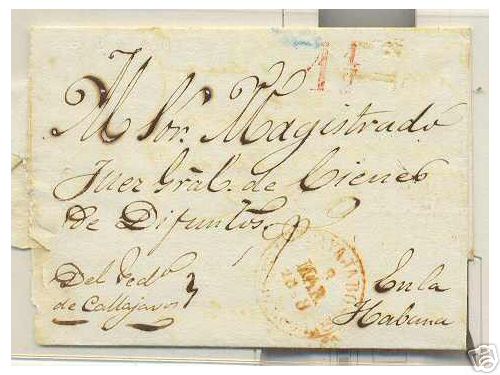 M. Sor. Magistrado
Juez Gral. de Bienes
de Difuntos.
Del Ped.o
de Callajaro
En la
Habana
MAR